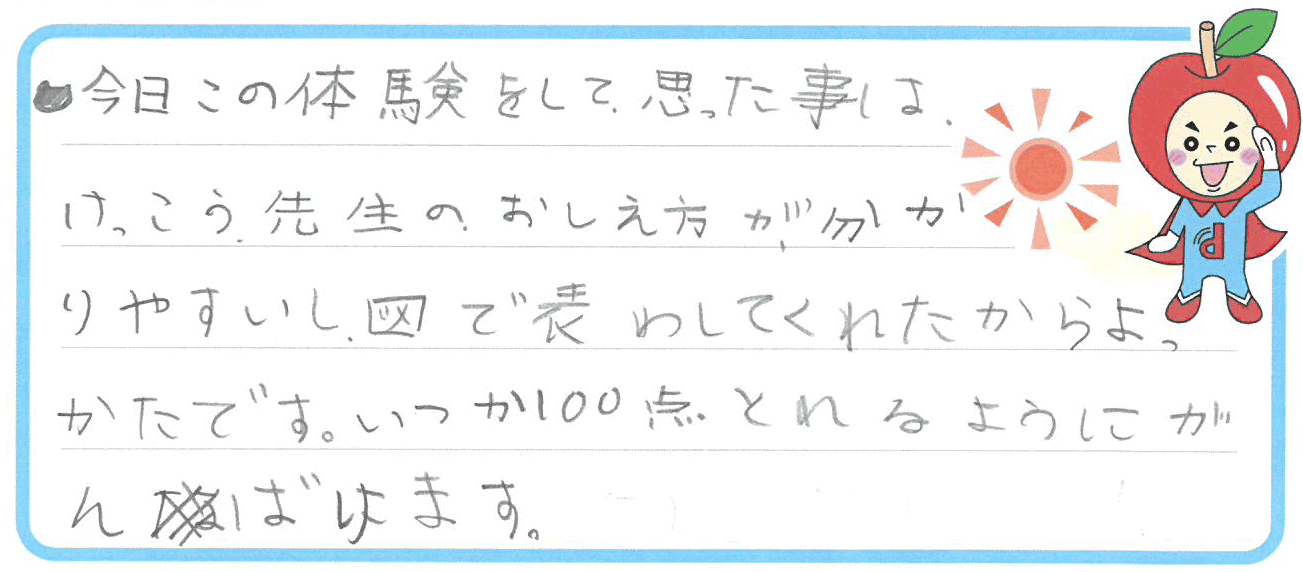 今日この体験をして、思った事は、
けっこう、先生の、おしえ方が、分か
りやすいし、図で表わしてくれたからよっ
かたです。いつか100点とれるようにが
んばります。